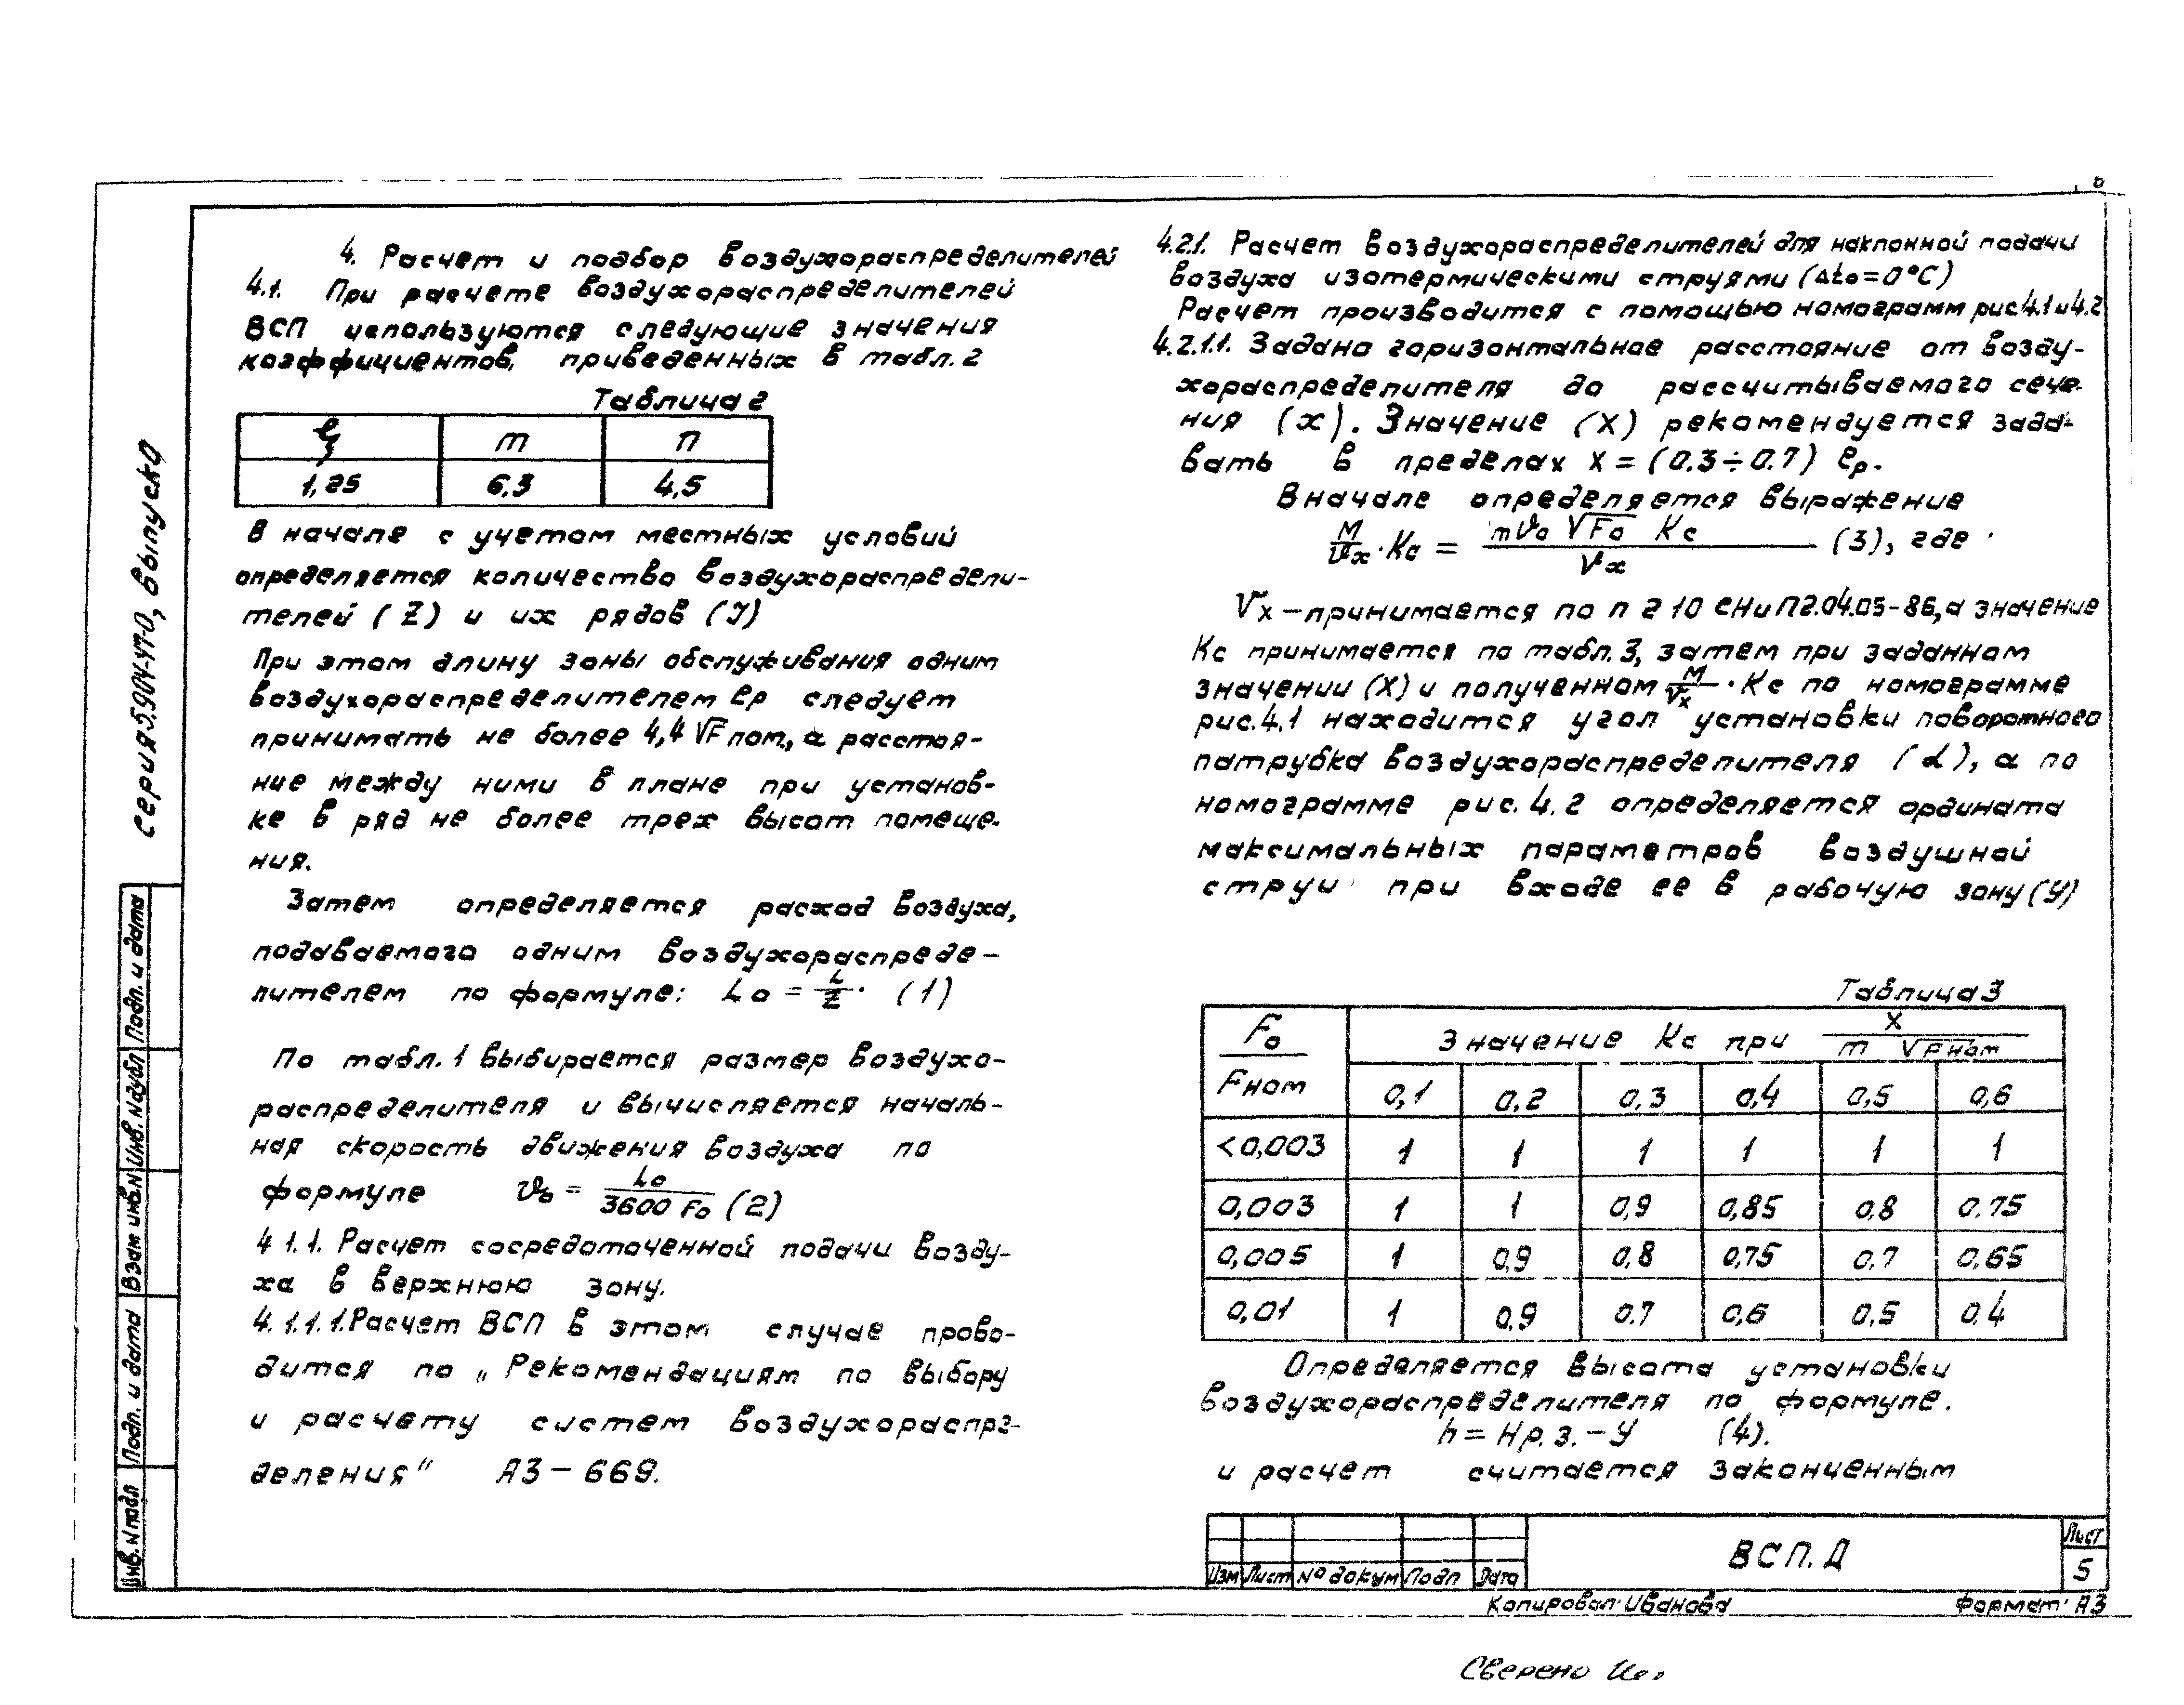 4. Расчет и подбор воздухораспределителей
4.1. При расчете воздухораспределителей
ВСП используются следующие значения
коэффициентов, приведенных в табл. 2
Таблица 2
ξ m п
1,25 6,3 4,5
В начале с учетом местных условий
определяется количество воздухораспредели-
телей (Z) и их рядов (У)
При этом длину зоны обслуживания одним
воздухораспределителем ℓр следует
принимать не более 4,4 √F пом., а расстоя-
ние между ними в плане при установ-
ке в ряд не более трех высот помеще-
ния.
Затем определяется расход воздуха,
подаваемого одним воздухораспреде-
лителем по формуле: Lo = L/Z · (1)
По табл. 1 выбирается размер воздухо-
распределителя и вычисляется началь-
ная скорость движения воздуха по
формуле υo = Lo / 3600 Fo (2)
4 1.1. Расчет сосредоточенной подачи возду-
ха в верхнюю зону.
4.1.1.1. Расчет ВСП в этом случае прово-
дится по „Рекомендациям по выбору
и расчету систем воздухораспре-
деления" А3-669.
4.2.1. Расчет воздухораспределителей для наклонной подачи
воздуха изотермическими струями (Δto=0°С)
Расчет производится с помощью номограмм рис 4.1 и 4.2
4.2.1.1. Задано горизонтальное расстояние от возду-
хораспределителя до рассчитываемого сече-
ния (х). Значение (X) рекомендуется зада-
вать в пределах X = (0.3÷0.7) ℓр.
Вначале определяется выражение
M/υx · Kc = mυo √Fo Kc / Vx (3), где
Vx – принимается по п 2 10 СНиП2.04.05-86, а значение
Kc принимается по табл. 3, затем при заданном
значении (X) и полученном M/Vx · Kc по номограмме
рис. 4.1 находится угол установки поворотного
патрубка воздухораспределителя (α), а по
номограмме рис. 4.2 определяется ордината
максимальных параметров воздушной
струи при входе ее в рабочую зону (У)
Таблица 3
Fo / Fном Значение Kc при X / m √Fном
0,1 0,2 0,3 0,4 0,5 0,6
<0,003 1 1 1 1 1 1
0,003 1 1 0,9 0,85 0,8 0.75
0,005 1 0,9 0,8 0,75 0.7 0,65
0,01 1 0,9 0.7 0,6 0,5 0,4
Определяется высота установки
воздухораспределителя по формуле.
h = Нр.з. – У (4).
и расчет считается законченным
Серия 5.904- , выпуск 0
Подп. и дата
Инв. N дубл
Взам инв. N
Подп. и дата
Инв. N подл
Изм Лист № докум Подп Дата
ВСП. Д
Лист
5
Копировал: Иванова
Формат: А3
Сверено